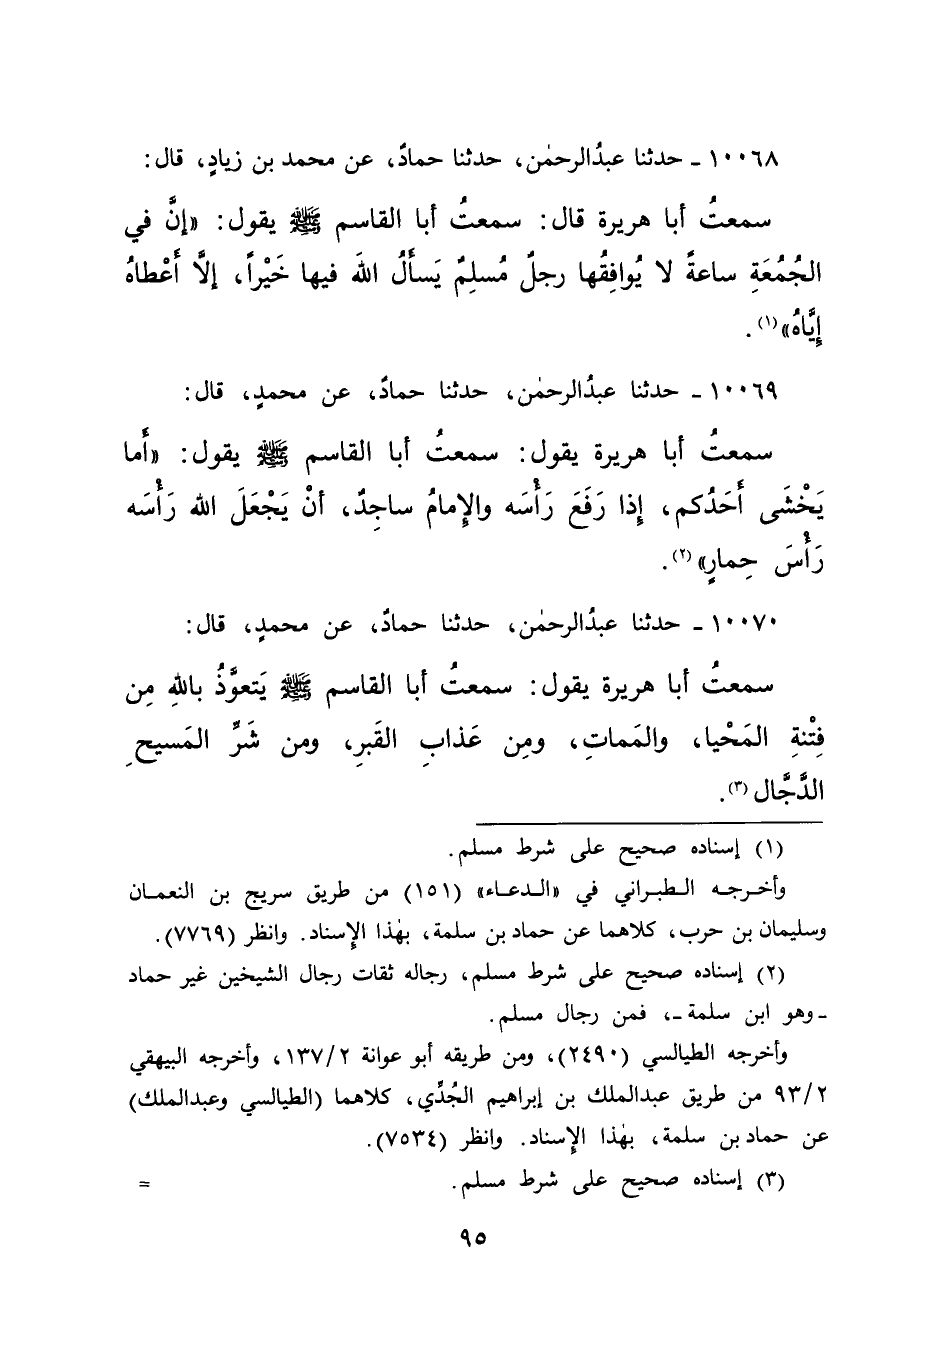 ١٠٠٦٨ - حدثنا عبدُالرحمٰن، حدثنا حمادٌ، عن محمد بن زيادٍ، قال:
سمعتُ أبا هريرة قال: سمعتُ أبا القاسم ﷺ يقول: «إنَّ في
الجُمُعَةِ ساعةً لا يُوافِقُها رجلٌ مُسلِمٌ يَسأَلُ اللهَ فيها خَيْراً، إلَّا أَعْطاهُ
إِيَّاهُ»(١).
١٠٠٦٩ - حدثنا عبدُالرحمٰن، حدثنا حمادٌ، عن محمدٍ، قال:
سمعتُ أبا هريرة يقول: سمعتُ أبا القاسم ﷺ يقول: «أَما
يَخْشَى أَحَدُكم، إِذا رَفَعَ رَأْسَه والإِمامُ ساجِدٌ، أنْ يَجْعَلَ الله رَأْسَه
رَأْسَ حِمارٍ»(٢).
١٠٠٧٠ - حدثنا عبدُالرحمٰن، حدثنا حمادٌ، عن محمدٍ، قال:
سمعتُ أبا هريرة يقول: سمعتُ أبا القاسم ﷺ يَتعوَّذُ باللهِ مِن
فِتْنةِ المَحْيا، والمَماتِ، ومِن عَذابِ القَبرِ، ومن شَرِّ المَسيحِ
الدَّجَّال(٣).
(١) إسناده صحيح على شرط مسلم.
وأخرجه الطبراني في «الدعاء» (١٥١) من طريق سريج بن النعمان
وسليمان بن حرب، كلاهما عن حماد بن سلمة، بهٰذا الإِسناد. وانظر (٧٧٦٩).
(٢) إسناده صحيح على شرط مسلم، رجاله ثقات رجال الشيخين غير حماد
- وهو ابن سلمة -، فمن رجال مسلم.
وأخرجه الطيالسي (٢٤٩٠)، ومن طريقه أبو عوانة ١٣٧/٢، وأخرجه البيهقي
٩٣/٢ من طريق عبدالملك بن إبراهيم الجُدِّي، كلاهما (الطيالسي وعبدالملك)
عن حماد بن سلمة، بهٰذا الإِسناد. وانظر (٧٥٣٤).
(٣) إسناده صحيح على شرط مسلم. =
٩٥